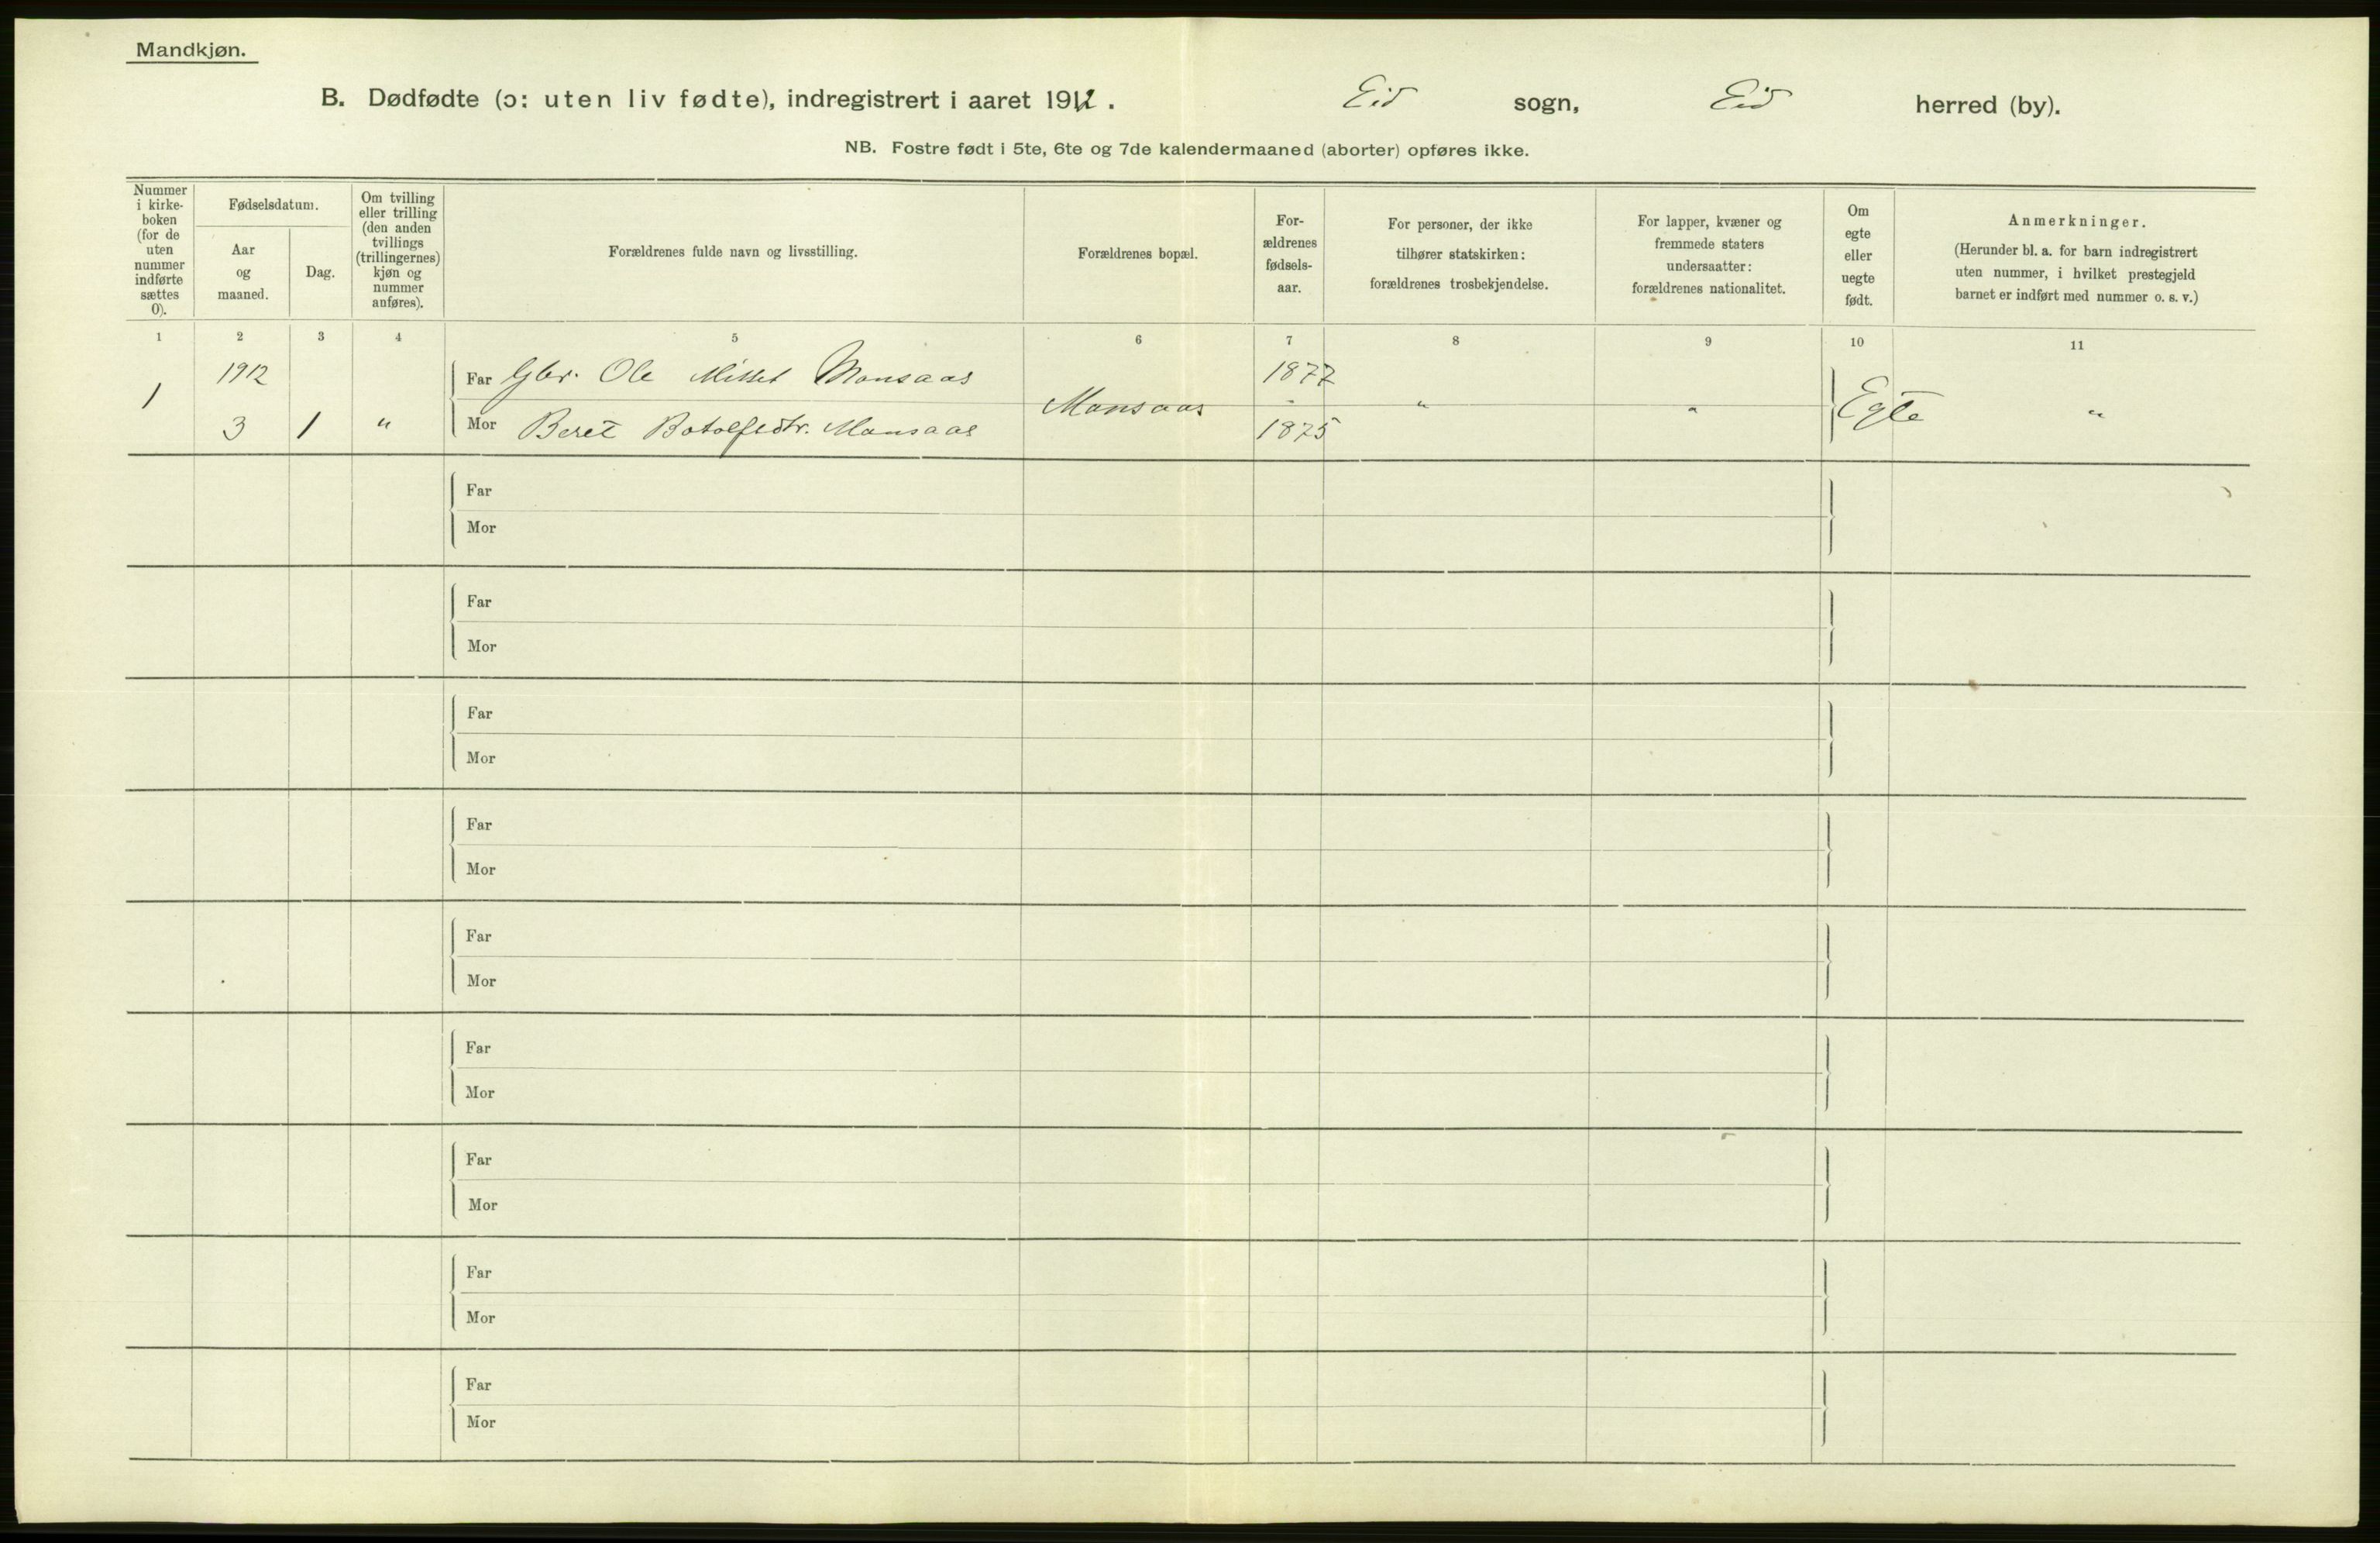 Mandkjøn.
B. Dødfødte (ɔ: uten liv fødte), indregistrert i aaret 1912. Eid sogn, Eid herred (by).
NB. Fostre født i 5te, 6te og 7de kalendermaaned (aborter) opføres ikke.
Nummer
i kirke-
boken
(for de
uten
nummer
indførte
sættes
0).
Fødselsdatum.
Aar
og
maaned.
Dag.
Om tvilling
eller trilling
(den anden
tvillings
(trillingernes)
kjøn og
nummer
anføres).
Forældrenes fulde navn og livsstilling.
Forældrenes bopæl.
For-
ældrenes
fødsels-
aar.
For personer, der ikke
tilhører statskirken:
forældrenes trosbekjendelse.
For lapper, kvæner og
fremmede staters
undersaatter:
forældrenes nationalitet.
Om
egte
eller
uegte
født.
Anmerkninger.
(Herunder bl. a. for barn indregistrert
uten nummer, i hvilket prestegjeld
barnet er indført med nummer o. s. v.)
1 2 3 4 5 6 7 8 9 10 11
1
1912
3 1 "
Far Gbr. Ole Monsaas
Mor Beret Botolfsdtr. Monsaas
Monsaas
1877
1875
" " Egte "
Far
Mor
Far
Mor
Far
Mor
Far
Mor
Far
Mor
Far
Mor
Far
Mor
Far
Mor
Far
Mor